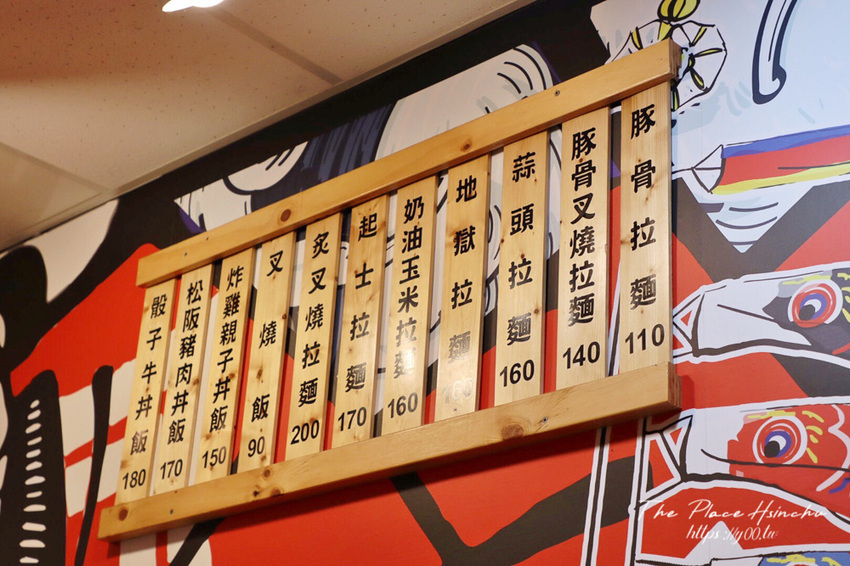 豚骨拉麵 110
豚骨叉燒拉麵 140
蒜頭拉麵 160
地獄拉麵 160
奶油玉米拉麵 160
起士拉麵 170
炙叉燒拉麵 200
叉燒飯 90
炸雞親子丼飯 150
松阪豬肉丼飯 170
骰子牛丼飯 180
The Place Hsinchu
https://y00.tw